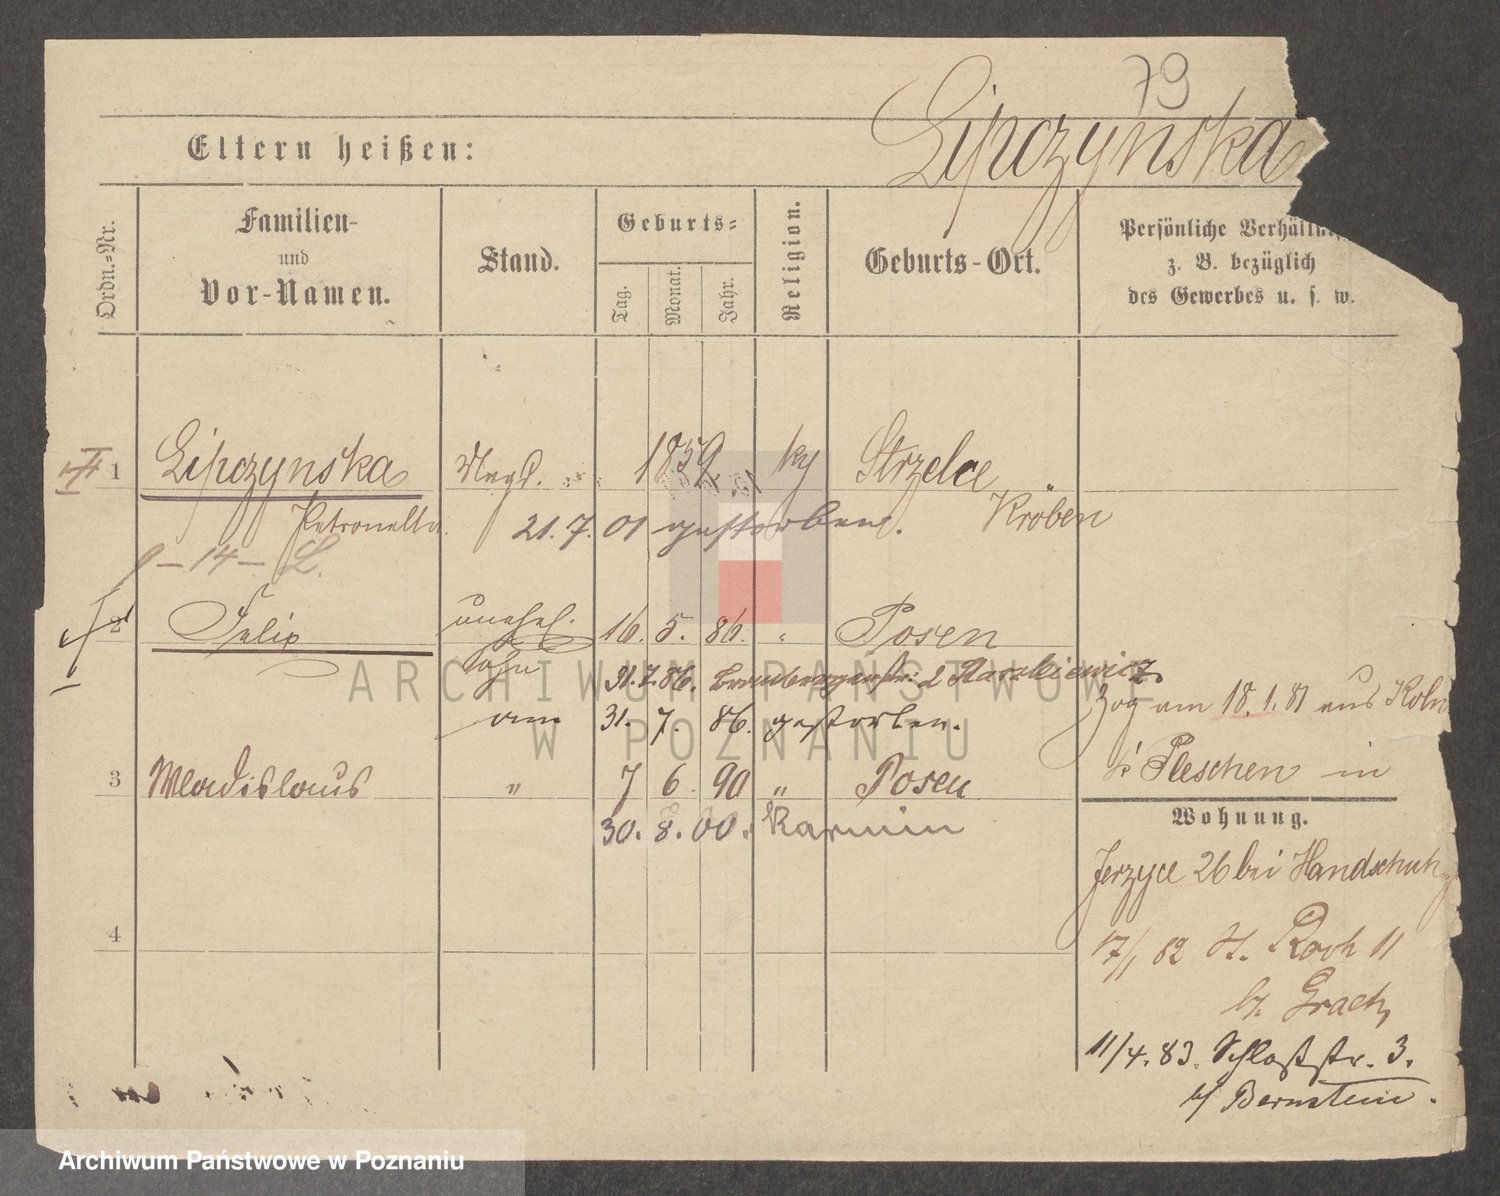 79
Lipczynska
Eltern heißen:
Ordn.-Nr.
Familien-
und
Vor-Namen.
Stand.
Geburts-
Tag.
Monat.
Jahr.
Religion.
Geburts-Ort.
Persönliche Verhältni
z. B. bezüglich
des Gewerbes u. s. w.
1 Lipczynska Magd. 1859 ky Strzelce
Petronella 21. 7. 01 gestorben. Kröben
14 – L.
2 Felix unehel. 16. 5. 86. " Posen
Sohn 31. 7. 86. Brombergerstr. 2
am 31. 7. 86. gestorben.
zog am 18. 1. 81 aus Koln
Pleschen in
3 Wladislaus " 7 6. 90 " Posen
30. 8. 00. Karmin
Wohnung.
Jerzyce 26 bei Handschuh
4
17/1 82 St. Roch 11
b. Graetz
11/4. 83. Schloßstr. 3.
b/ Bernstein.
ARCHIWUM PAŃSTWOWE
W POZNANIU
Archiwum Państwowe w Poznaniu